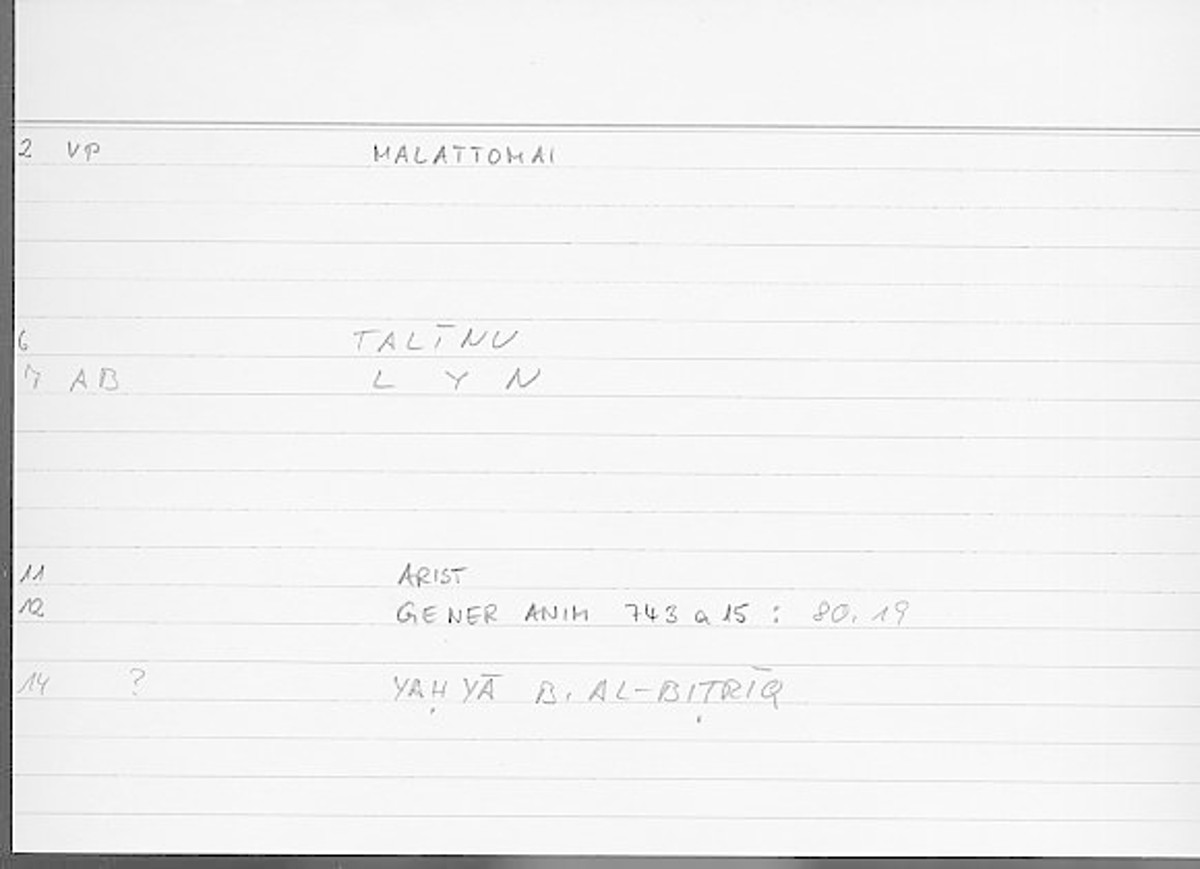 2 VP MALATTOMAI
6 TALĪNU
7 AB L Y N
11 ARIST
12 GENER ANIM 743 a 15 : 80, 19
14 ? YAḤYĀ B. AL-BIṬRĪQ